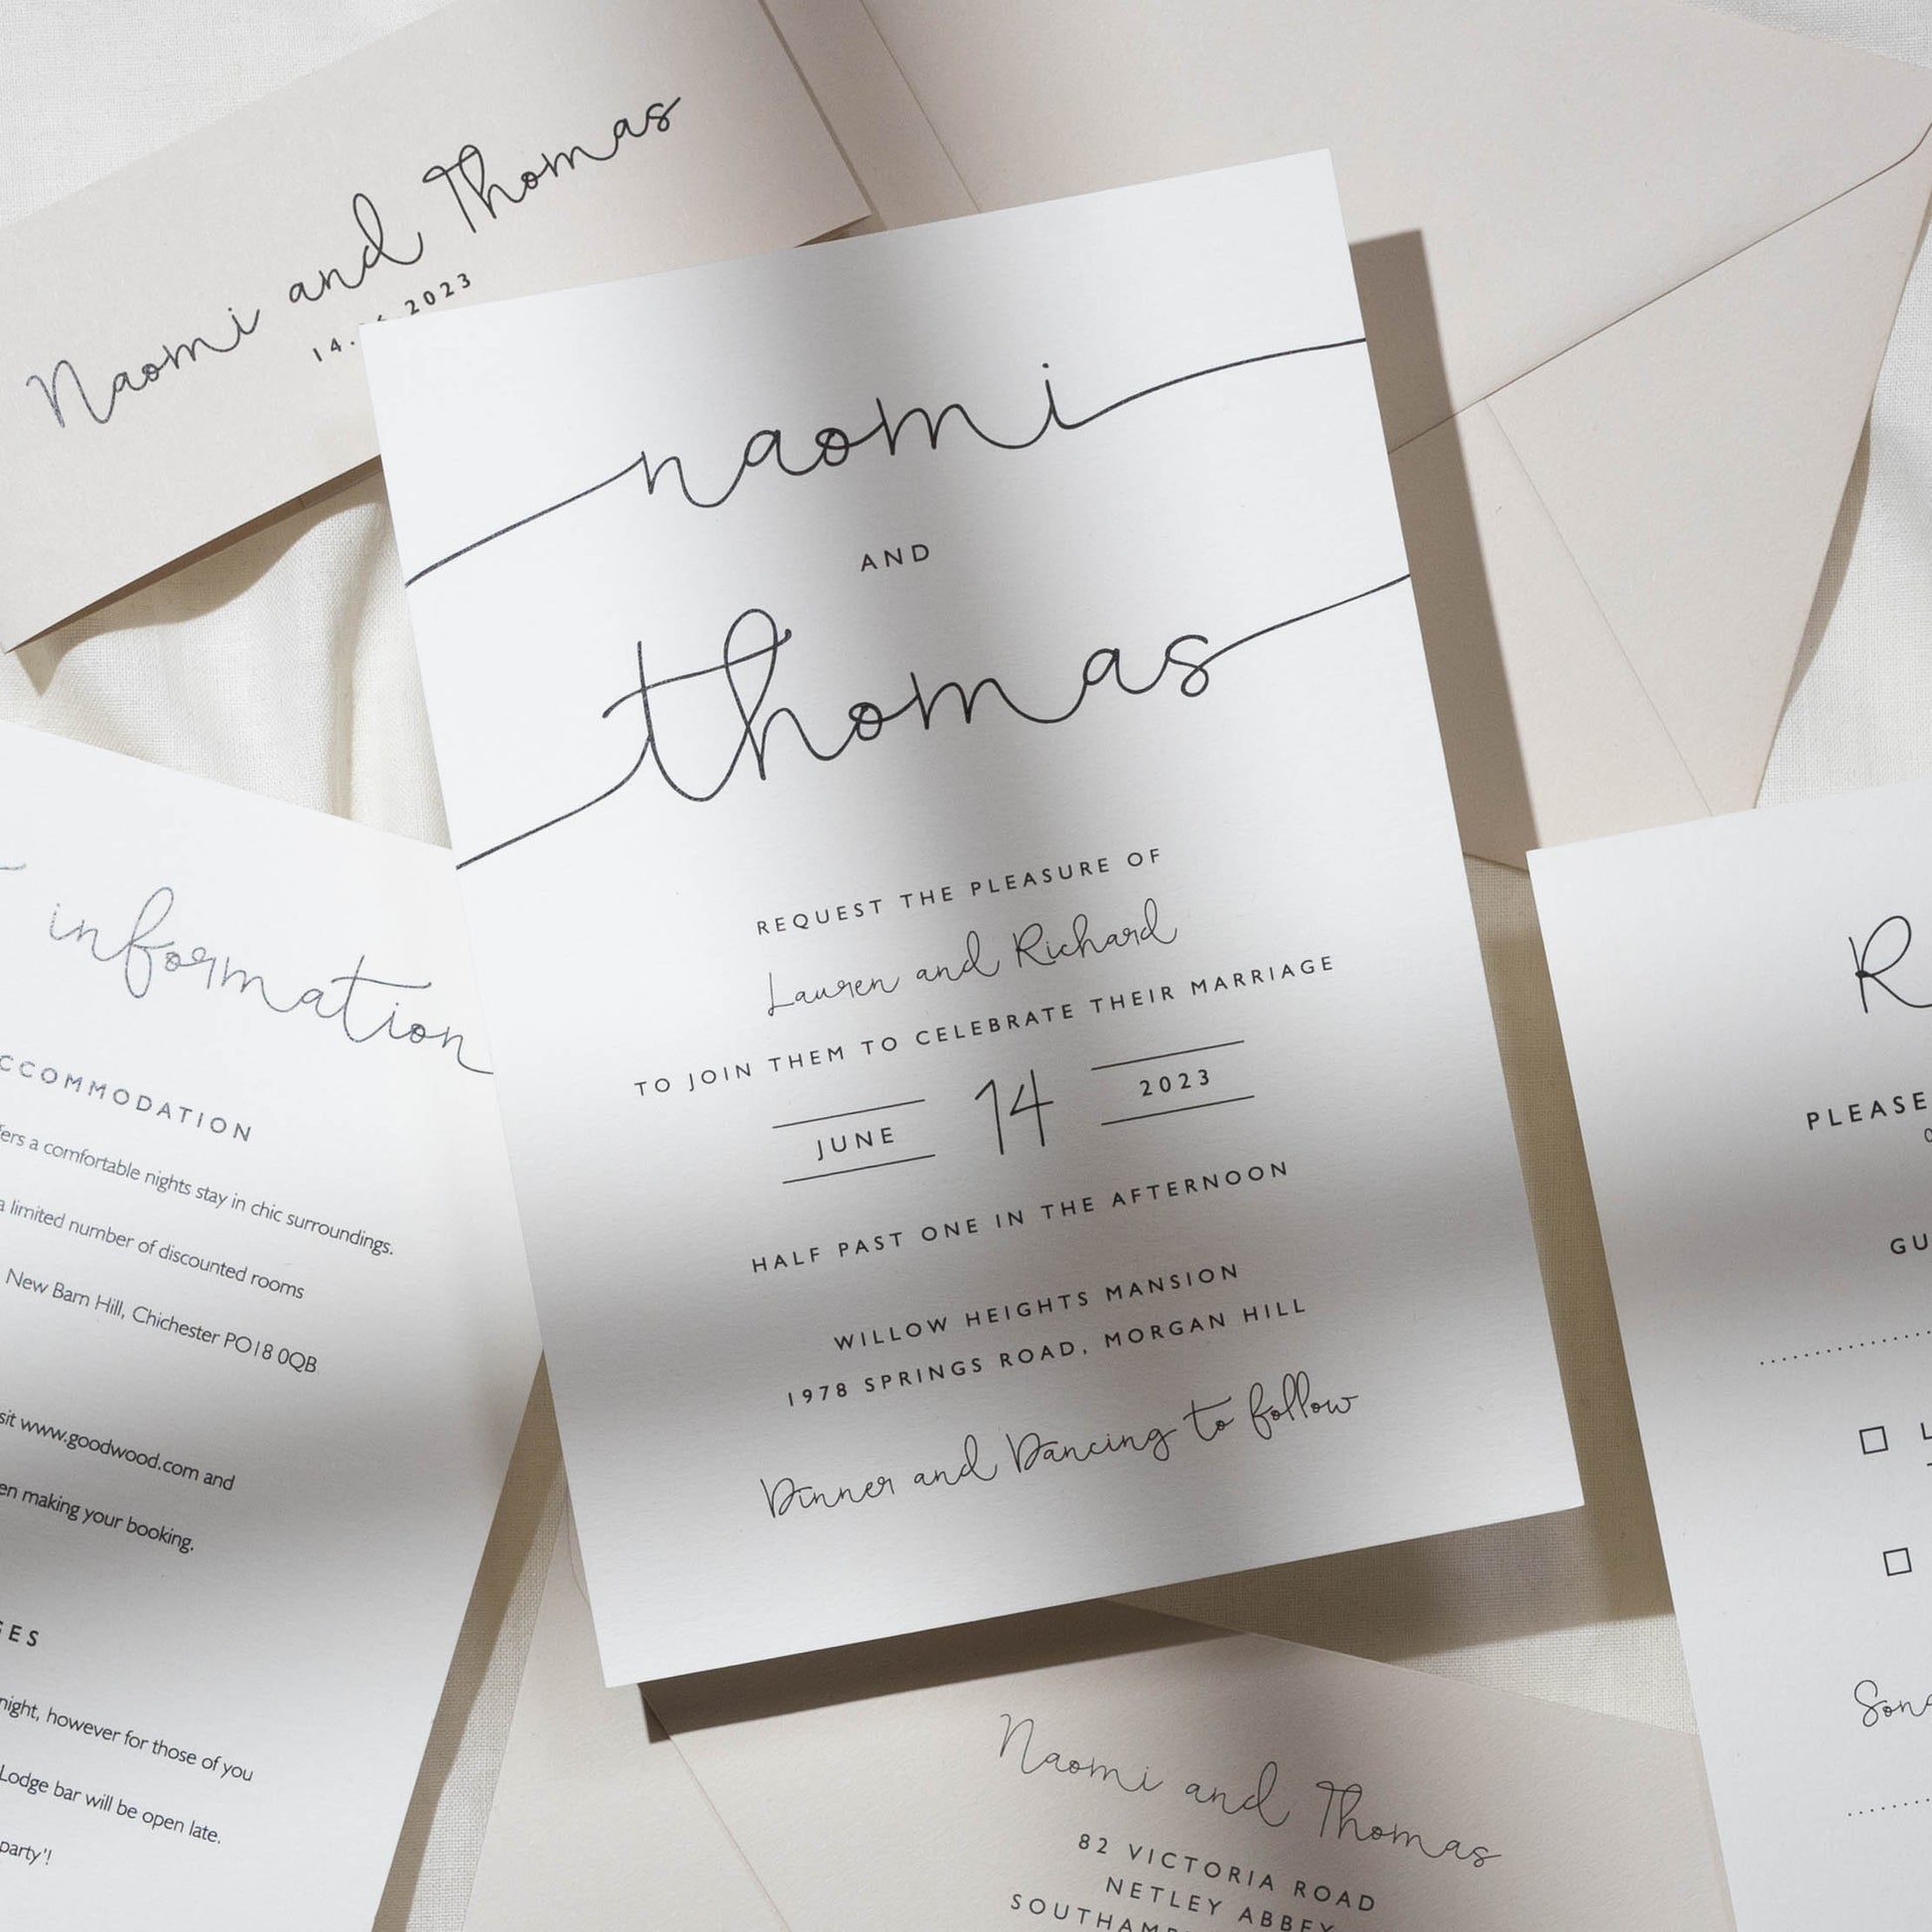 Naomi and Thomas
14. 2023
naomi
AND
thomas
REQUEST THE PLEASURE OF
Lauren and Richard
TO JOIN THEM TO CELEBRATE THEIR MARRIAGE
JUNE 14 2023
HALF PAST ONE IN THE AFTERNOON
WILLOW HEIGHTS MANSION
1978 SPRINGS ROAD, MORGAN HILL
Dinner and Dancing to follow
information
CCOMMODATION
fers a comfortable nights stay in chic surroundings.
a limited number of discounted rooms
New Barn Hill, Chichester PO18 0QB
sit www.goodwood.com and
en making your booking.
ES
night, however for those of you
Lodge bar will be open late.
party'!
R
PLEASE
GU
L
Song
Naomi and Thomas
82 VICTORIA ROAD
NETLEY ABBEY
SOUTHAM